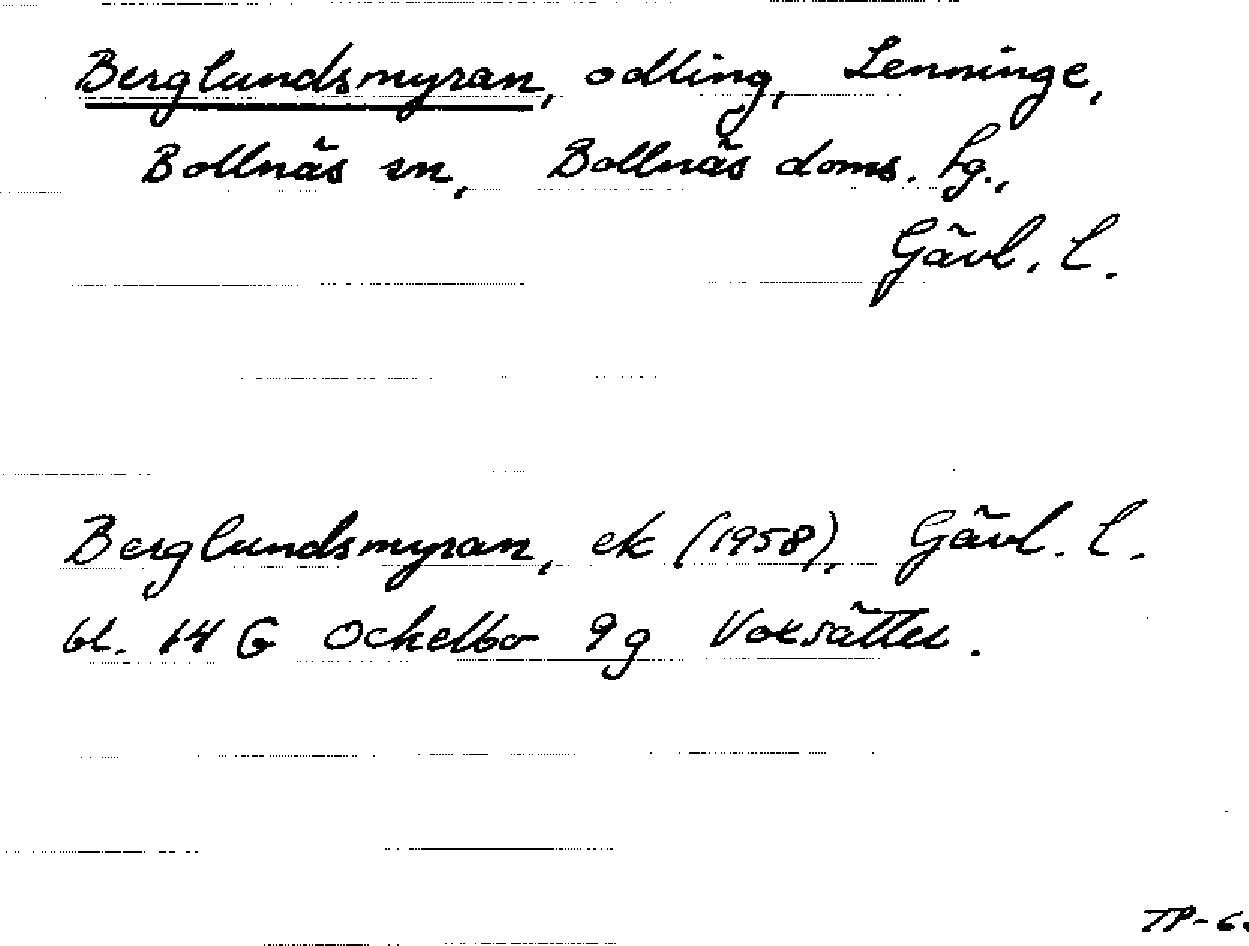 Berglundsmyran, odling, Lenninge,
Bollnäs sn, Bollnäs doms. tg.,
Gävl. l.
Berglundsmyran, ek (1958), Gävl. l.
bl. 14 G Ockelbo 9g Voxsätter.
TP-6